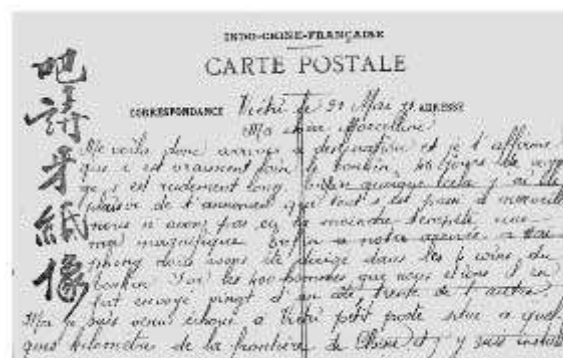 INDO-CHINE-FRANÇAISE
CARTE POSTALE
CORRESPONDANCE
ADRESSE
Vietri le 31 Mai
Ma chère Marcelline
Me voila donc arrivé a destination et je t'affirme
que c'est vraiment loin le Tonkin,
ça c'est rudement long. Enfin quoique cela j'ai le
plaisir de t'annoncer que tout s'est passé a merveille
nous n'avons pas eu la moindre tempête une
mer magnifique. Enfin a notre arrivée a Hai
phong nous avons été dirigé dans les 4 coins du
Tonkin Sur les 400 hommes que nous étions il en
fut envoyé vingt d'un côté, trente de l'autre.
Moi je suis venu échoué a Vietri petit poste situé a quel
ques kilometre de la frontière de Chine et j'y suis install
牙
紙
像